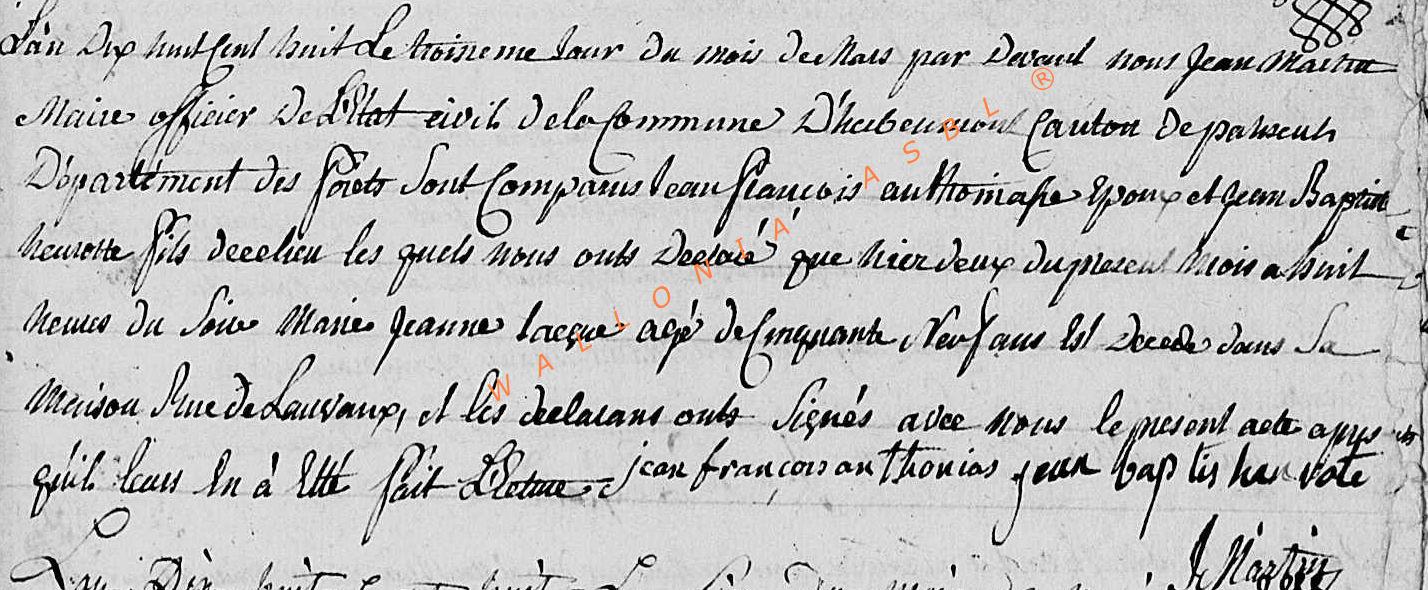 L'an Dix huit Cent huit Le troisieme Jour du mois de Mars par Devant nous Jean Martin
Maire officier De L'Etat civil de la Commune D'herbeumont Canton de paliseul
Département des forêts Sont Comparus Jean françois Epoux et Jean Baptiste
henrotte fils de ce lieu les quels nous onts Declaré que hier deux du present mois a huit
heures du Soire Marie Jeanne agé de Cinquante Neuf ans Est Decede dans Sa
Maison Rue de Lauvaux, et les declarans onts Signés avec nous le present acte apres
qu'il leurs En à Etté fait Lecture. jean françois an thonias jean baptis hen rote
J Martin
L'an Dix huit
WALLONIA ASBL ®